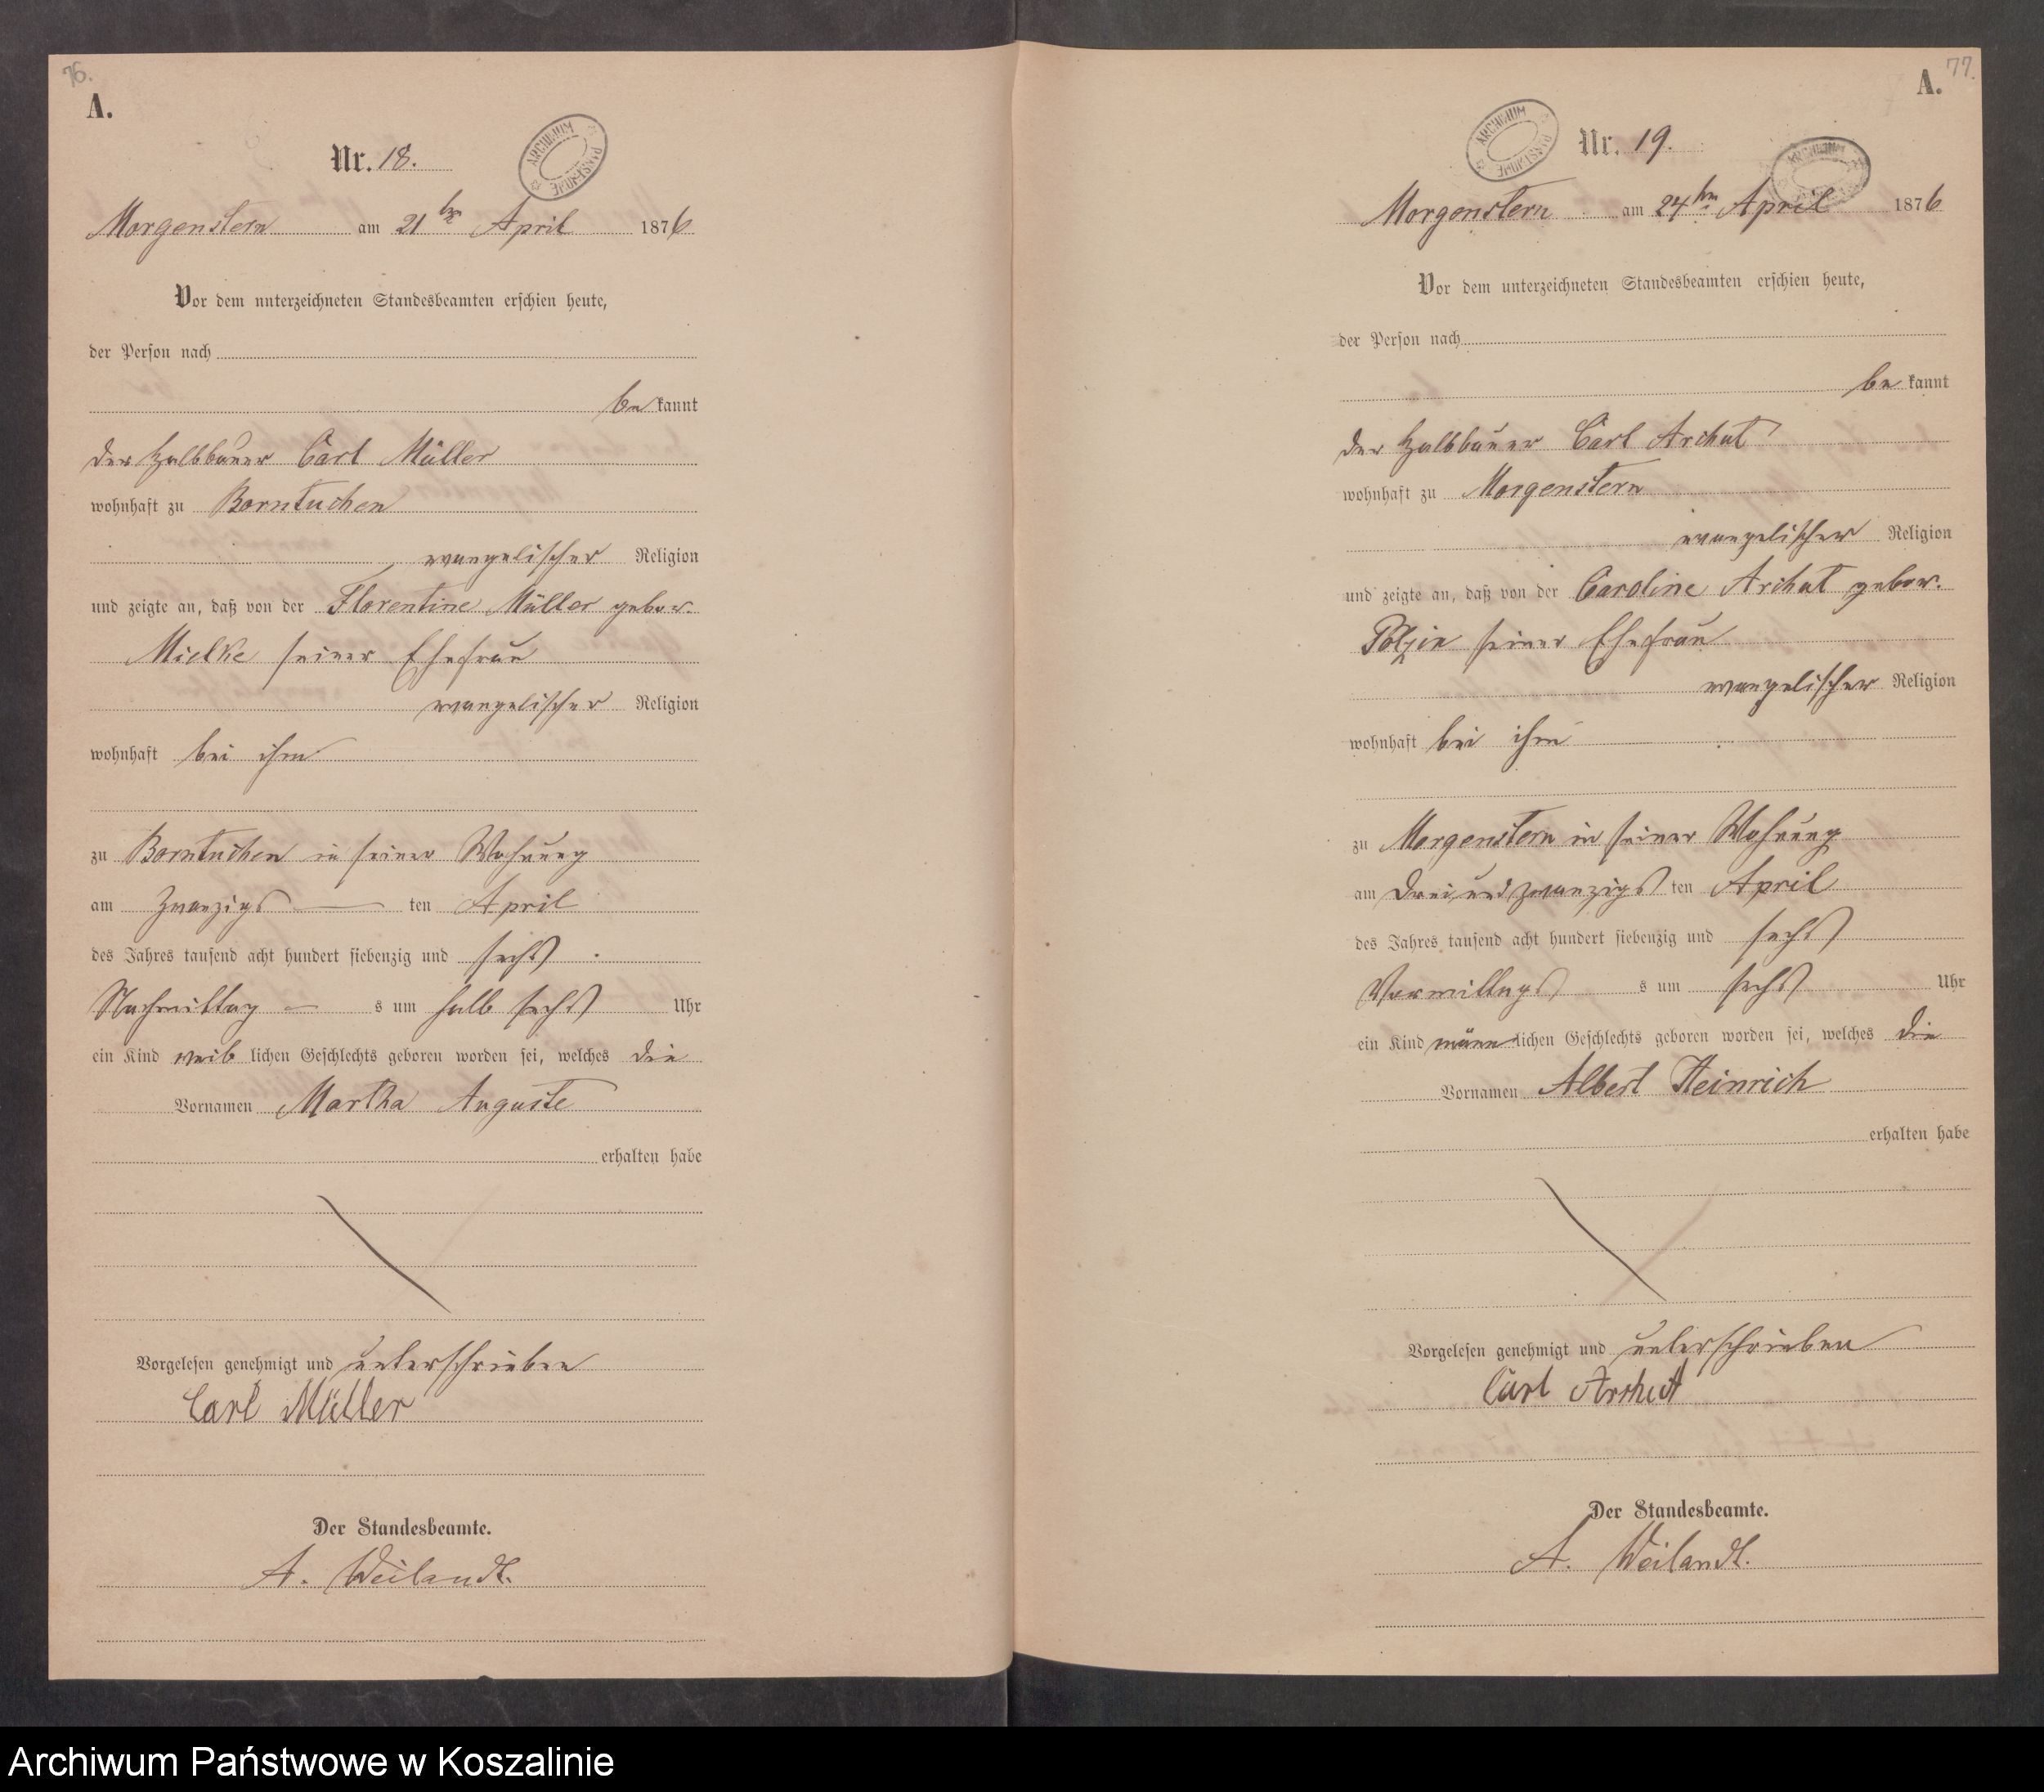 76.
A.
ARCHIWUM PAŃSTWOWE
Nr. 18.
Morgenstern am 21ten April 1876
Vor dem unterzeichneten Standesbeamten erschien heute,
der Person nach
be kannt
der Halbbauer Carl Müller
wohnhaft zu Borntuchen
evangelischer Religion
und zeigte an, daß von der Florentine Müller gebor.
Mielke seiner Ehefrau
evangelischer Religion
wohnhaft bei ihm
zu Borntuchen in seiner Wohnung
am Zwanzigs ten April
des Jahres tausend acht hundert siebenzig und sechs
Nachmittag s um halb sechs Uhr
ein Kind weib lichen Geschlechts geboren worden sei, welches die
Vornamen Martha Auguste
erhalten habe
Vorgelesen genehmigt und unterschrieben
Carl Müller
Der Standesbeamte.
A. Weilandt.
77.
A.
ARCHIWUM PAŃSTWOWE
ARCHIWUM
Nr. 19.
Morgenstern am 24ten April 1876
Vor dem unterzeichneten Standesbeamten erschien heute,
der Person nach
be kannt
der Halbbauer Carl Archut
wohnhaft zu Morgenstern
evangelischer Religion
und zeigte an, daß von der Caroline Archut gebor.
Polzin seiner Ehefrau
evangelischer Religion
wohnhaft bei ihm
zu Morgenstern in seiner Wohnung
am Dreiundzwanzigs ten April
des Jahres tausend acht hundert siebenzig und sechs
Vormittags s um sechs Uhr
ein Kind männ lichen Geschlechts geboren worden sei, welches die
Vornamen Albert Heinrich
erhalten habe
Vorgelesen genehmigt und unterschrieben
Carl Archut
Der Standesbeamte.
A. Weilandt.
Archiwum Państwowe w Koszalinie